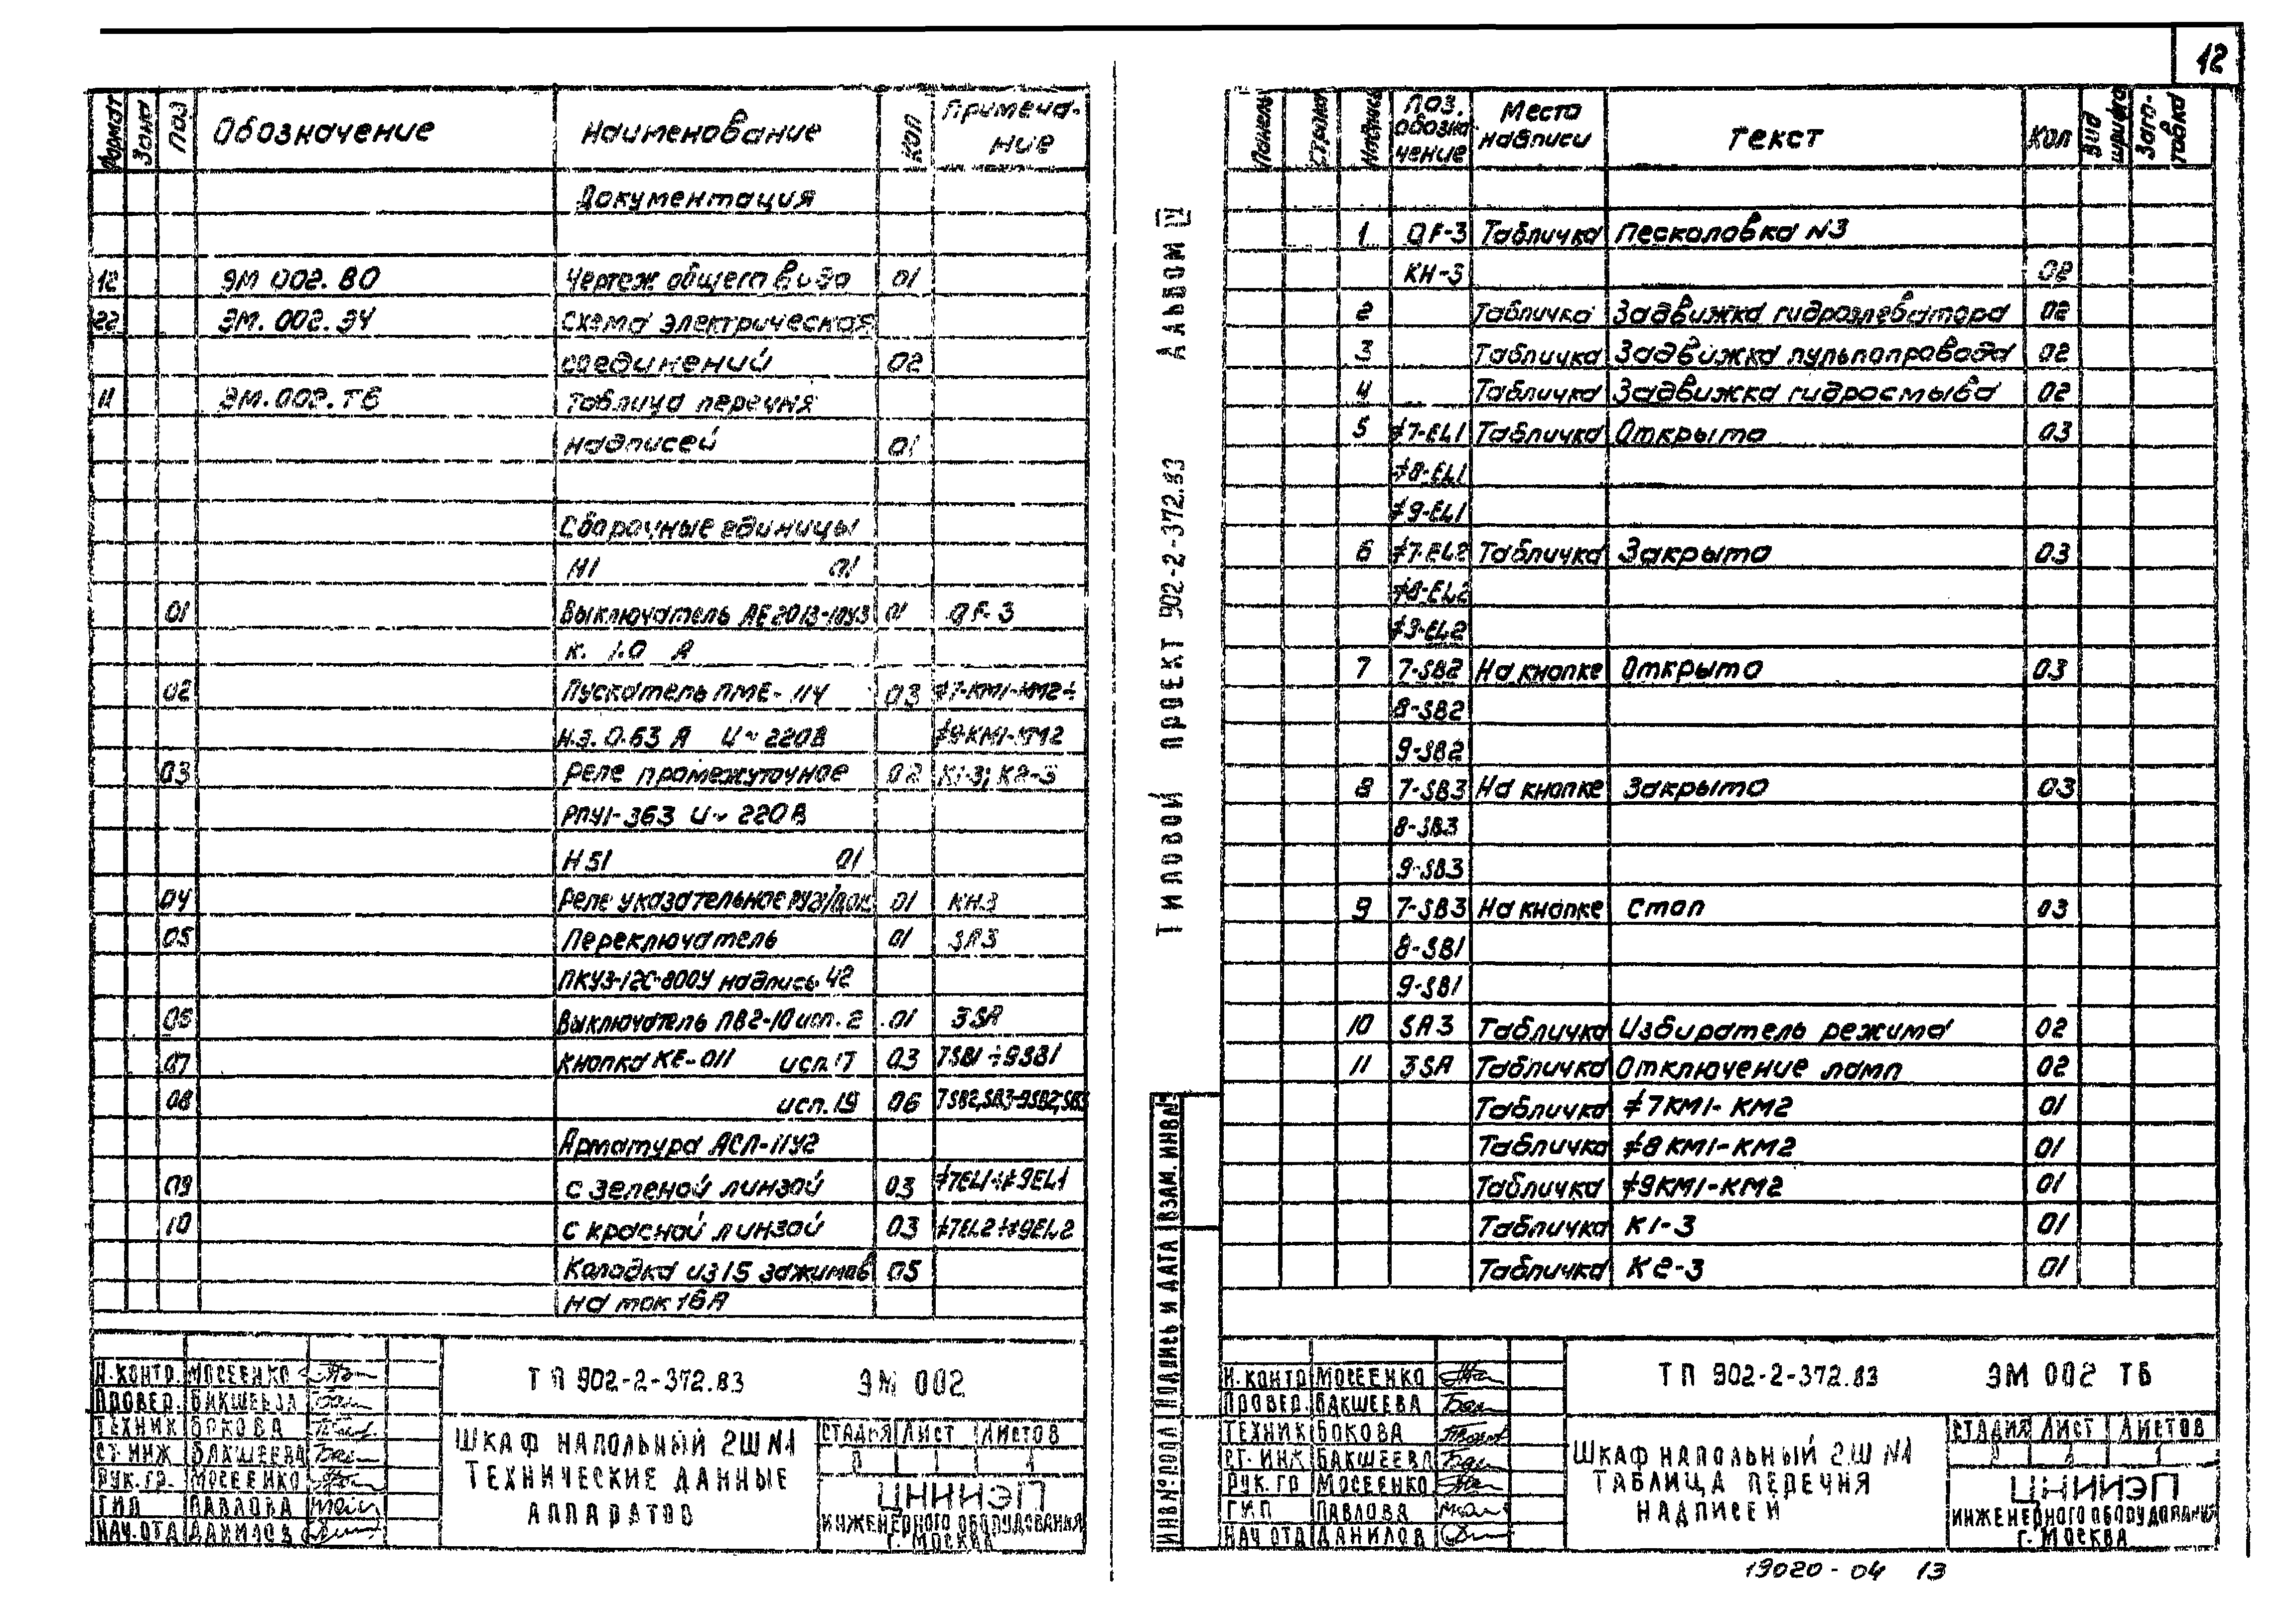 12
Формат Зона Поз Обозначение Наименование Кол Примеча-
ние
Документация
12 ЭМ 002. ВО Чертеж общего вида 01
22 ЭМ. 002. Э4 Схема электрическая
соединений 02
11 ЭМ. 002. ТБ Таблица перечня
надписей 01
Сборочные единицы
Н1 01
01 Выключатель АЕ2013-10У3 01 QF-3
к. 1.0 А
02 Пускатель ПМЕ-114 03 ≠7-КМ1-КМ2÷
н.э. 0.63 А U~220В ≠9-КМ1-КМ2
03 Реле промежуточное 02 К1-3; К2-3
РПУ1-363 U~220В
Н51 01
04 Реле указательное 01 КН.3
05 Переключатель 01 SA3
ПКУ3-12С-800У надпись 42
06 Выключатель ПВ2-10 исп. 2 01 3SA
07 Кнопка КЕ-011 исп. 17 03 7SB1÷9SB1
08 исп. 19 06 7SB2,SB3-9SB2,SB3
Арматура АСЛ-11У2
09 с зеленой линзой 03 ≠7EL1÷≠9EL1
10 с красной линзой 03 ≠7EL2÷≠9EL2
Колодка из 15 зажимов 05
на ток 16А
Н.контр. Мосеенко
Провер. Бакшеева
Техник Бокова
Ст.инж Бакшеева
Рук.гр. Мосеенко
ГИП Павлова
Нач.отд Данилов
ТП 902-2-372.83 ЭМ 002
Шкаф напольный 2Ш №1
технические данные
аппаратов
Стадия Лист Листов
Р 1 1
ЦНИИЭП
инженерного оборудования
г. Москва
Альбом IV
Типовой проект 902-2-372.83
Взам. инв. №
Подпись и дата
Инв № подл
Панель Строка Надпись Поз.
обозна-
чение Места
надписи Текст Кол Вид
шрифта Заго-
товка
1 QF-3 Табличка Песколовка N3
КН-3 02
2 Табличка Задвижка гидроэлеватора 02
3 Табличка Задвижка пульпопровода 02
4 Табличка Задвижка гидросмыва 02
5 ≠7-EL1 Табличка Открыто 03
≠8-EL1
≠9-EL1
6 ≠7-EL2 Табличка Закрыто 03
≠8-EL2
≠9-EL2
7 7-SB2 На кнопке Открыто 03
8-SB2
9-SB2
8 7-SB3 На кнопке Закрыто 03
8-SB3
9-SB3
9 7-SB3 На кнопке Стоп 03
8-SB1
9-SB1
10 SA3 Табличка Избиратель режима 02
11 3SA Табличка Отключение ламп 02
Табличка ≠7КМ1-КМ2 01
Табличка ≠8КМ1-КМ2 01
Табличка ≠9КМ1-КМ2 01
Табличка К1-3 01
Табличка К2-3 01
Н.контр Мосеенко
Провер. Бакшеева
Техник Бокова
Ст.инж Бакшеева
Рук.гр Мосеенко
ГИП Павлова
Нач отд Данилов
ТП 902-2-372.83 ЭМ 002 ТБ
Шкаф напольный 2Ш №1
таблица перечня
надписей
Стадия Лист Листов
ЦНИИЭП
инженерного оборудования
г. Москва
19020-04 13